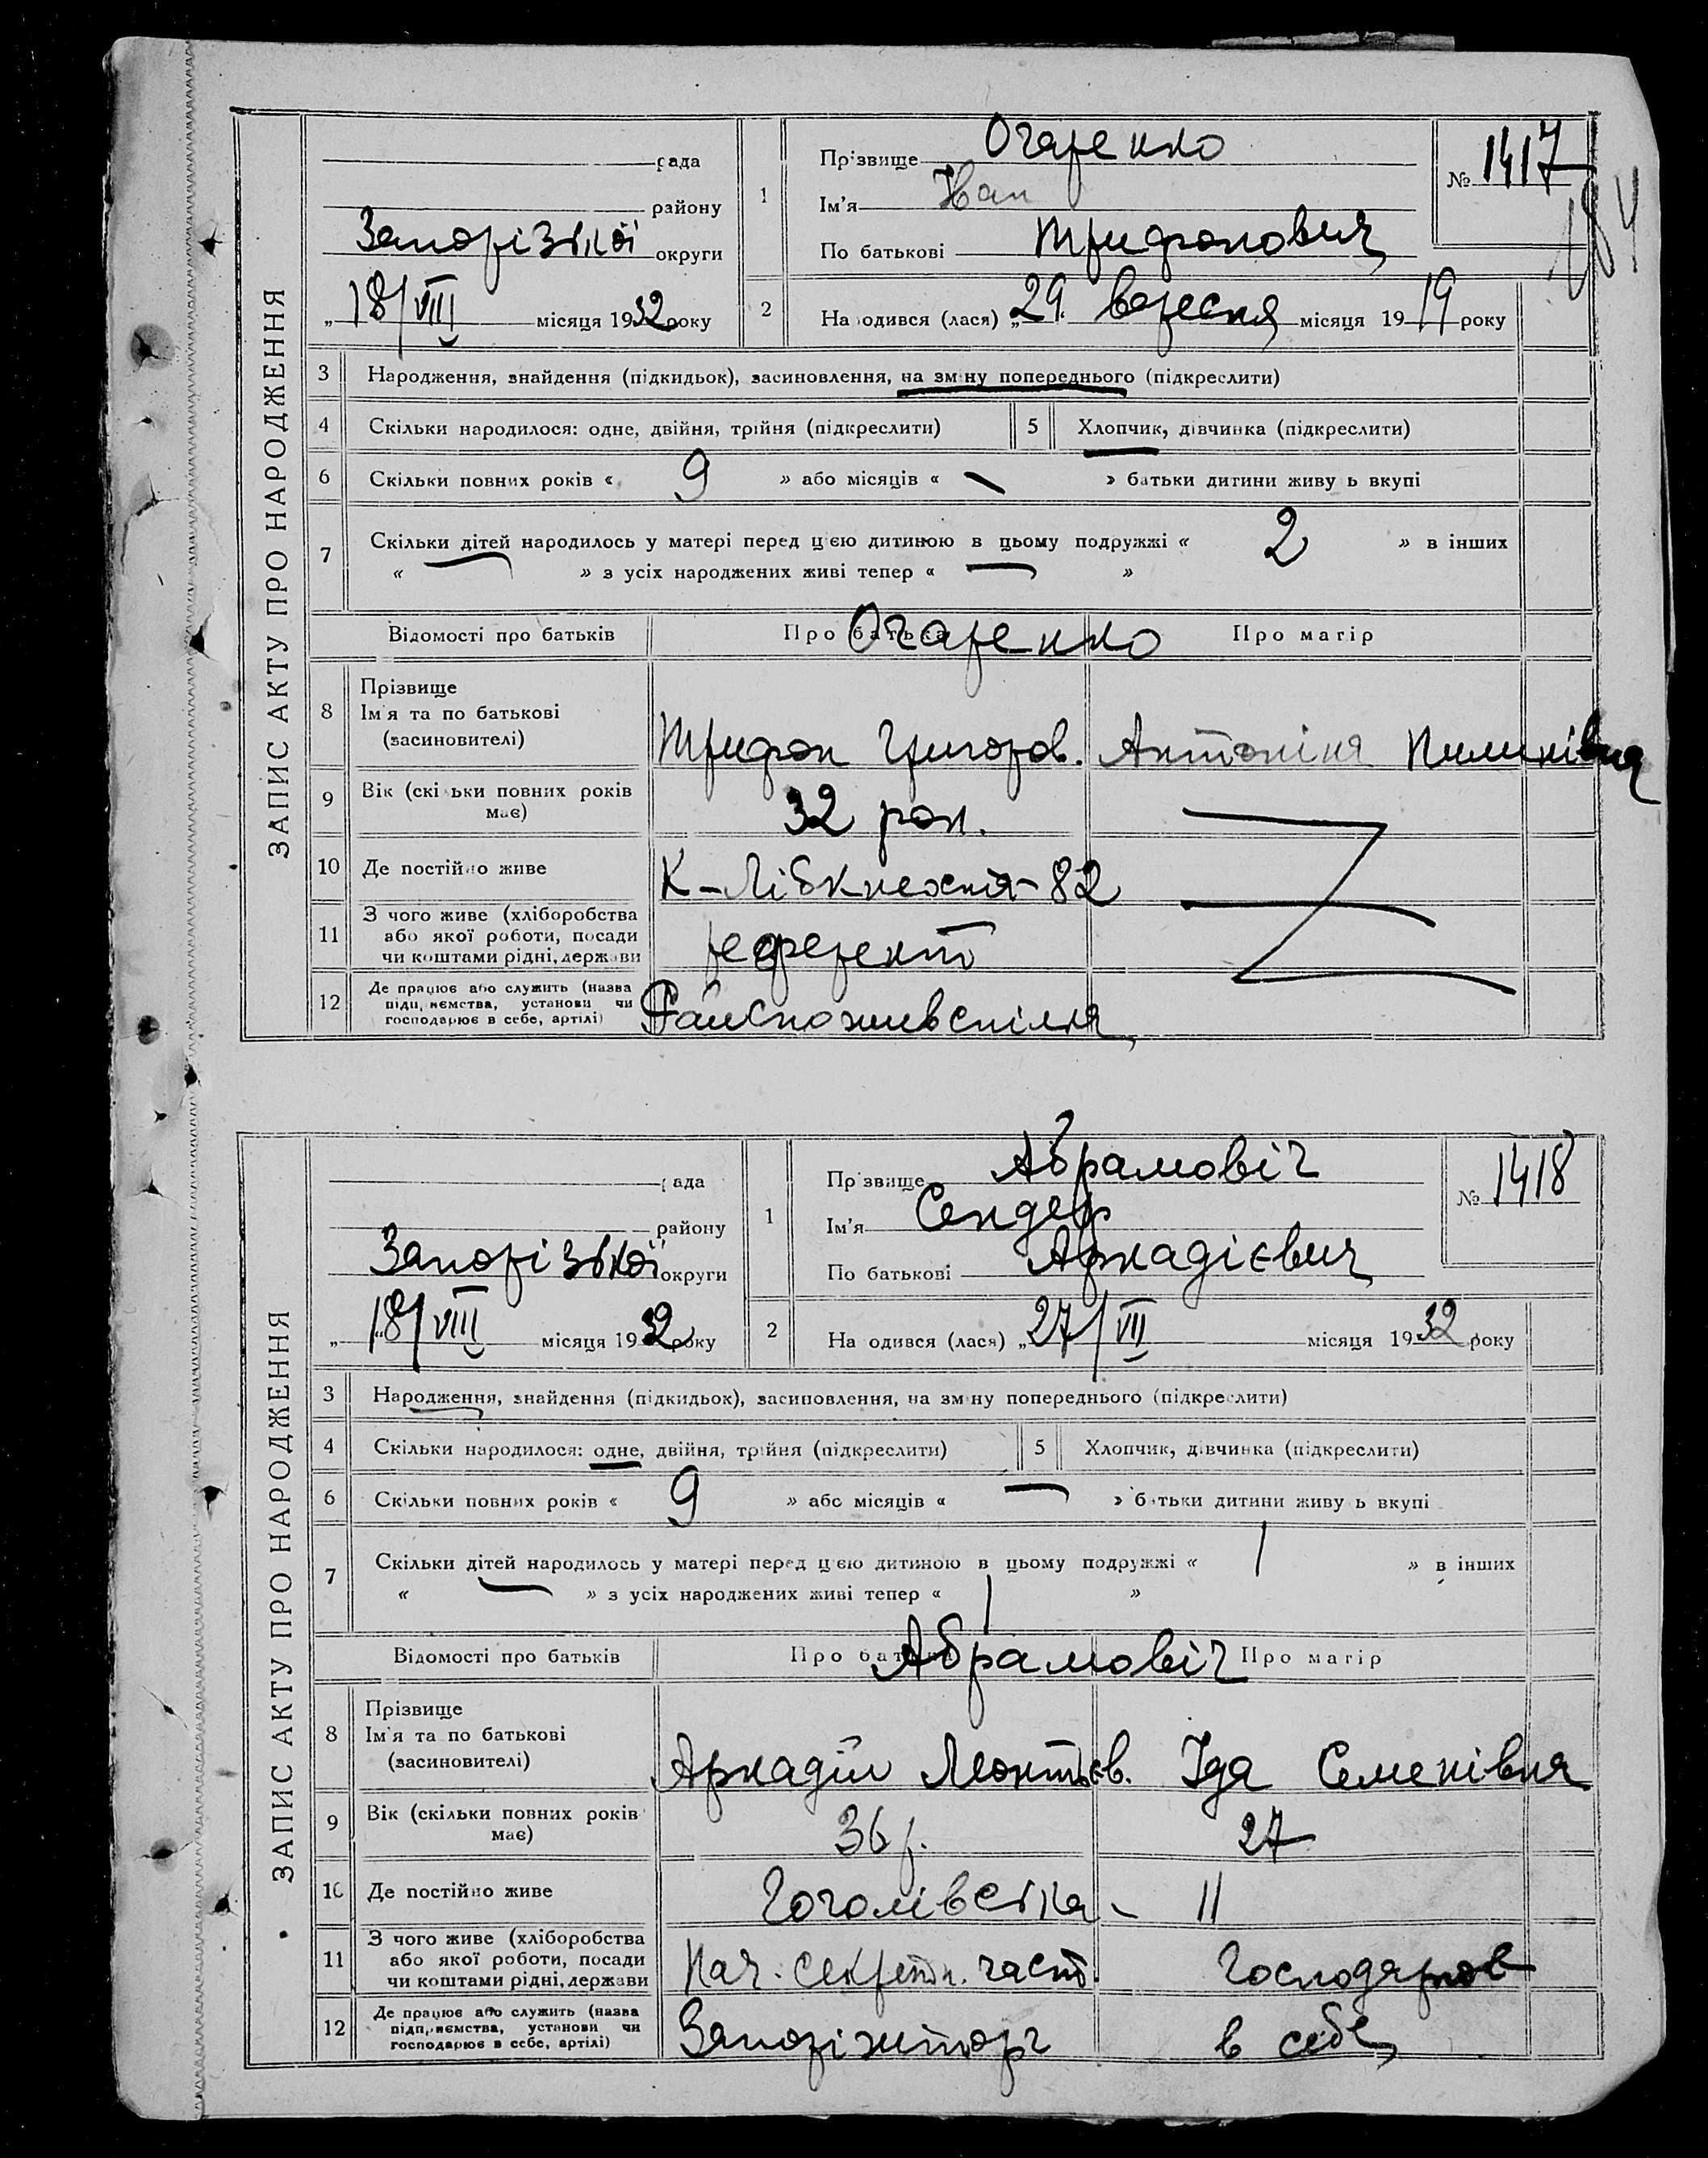 ЗАПИС АКТУ ПРО НАРОДЖЕННЯ
рада
району
Запорізької округи
„18/VIII місяця 1932 року
1 Прізвище Огаренко
Ім'я Іван
По батькові Трифонович
№ 1417
184
2 На одився (лася) „29 вересня місяця 1919 року
3 Народження, знайдення (підкидьок), засиновлення, на зміну попереднього (підкреслити)
4 Скільки народилося: одне, двійня, трійня (підкреслити) 5 Хлопчик, дівчинка (підкреслити)
6 Скільки повних років « 9 » або місяців « — » батьки дитини живу ь вкупі
7 Скільки дітей народилось у матері перед цією дитиною в цьому подружжі « 2 » в інших
« — » з усіх народжених живі тепер « — »
Відомості про батьків Про батька Про матір
Огаренко
8 Прізвище
Ім'я та по батькові
(засиновителі)
Трифон Григоров. Антоніна Пилипівна
9 Вік (скі ьки повних років має) 32 рок.
10 Де постійно живе К-Лібкнехта-82
11 З чого живе (хліборобства
або якої роботи, посади
чи коштами рідні, держави
референт
12 Де працює або служить (назва
підприємства, установи чи
господарює в себе, артілі)
Райспоживспілка
ЗАПИС АКТУ ПРО НАРОДЖЕННЯ
рада
району
Запорізької округи
„18/VIII місяця 1932 року
1 Прізвище Абрамовіч
Ім'я Сендер
По батькові Аркадієвич
№ 1418
2 На одився (лася) „27/VII місяця 1932 року
3 Народження, знайдення (підкидьок), засиновлення, на зміну попереднього (підкреслити)
4 Скільки народилося: одне, двійня, трійня (підкреслити) 5 Хлопчик, дівчинка (підкреслити)
6 Скільки повних років « 9 » або місяців « — » батьки дитини живу ь вкупі
7 Скільки дітей народилось у матері перед цією дитиною в цьому подружжі « 1 » в інших
« — » з усіх народжених живі тепер « 1 »
Відомості про батьків Про батька Про матір
Абрамовіч
8 Прізвище
Ім'я та по батькові
(засиновителі)
Аркадій Леонтьєв. Іда Семенівна
9 Вік (скільки повних років має) 36 р. 27
10 Де постійно живе Гоголівська - 11
11 З чого живе (хліборобства
або якої роботи, посади
чи коштами рідні, держави
Нач. секретн. част. Господарює
12 Де працює або служить (назва
підприємства, установи чи
господарює в себе, артілі)
Запоріжторг в себе